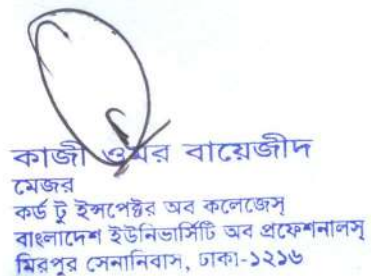 কাজী ওমর বায়েজীদ
মেজর
কর্ড টু ইন্সপেক্টর অব কলেজেস্
বাংলাদেশ ইউনিভার্সিটি অব প্রফেশনালস্
মিরপুর সেনানিবাস, ঢাকা-১২১৬